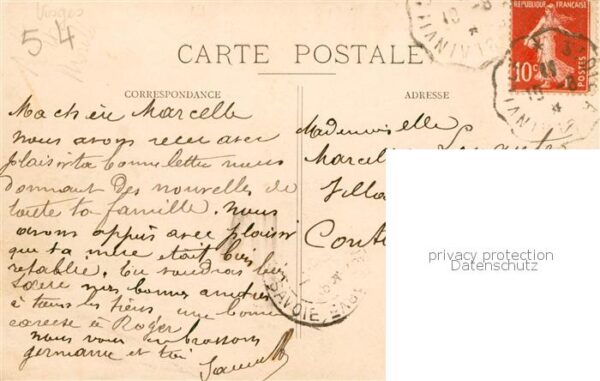 54
RÉPUBLIQUE FRANÇAISE
10c
POSTES
CARTE POSTALE
CORRESPONDANCE
ADRESSE
Ma chère Marcelle
nous avons reçu avec
plaisir ta bonne lettre nous
donnant des nouvelles de
toute ta famille. nous
avons appris avec plaisir
que ta mère était bien
retablie. tu voudras bien
nos bonnes amitiés
à tous les tiens une bonne
caresse à Roger
nous vous embrassons
germaine et toi
Mademoiselle
Villa
SAVOIE
privacy protection
Datenschutz